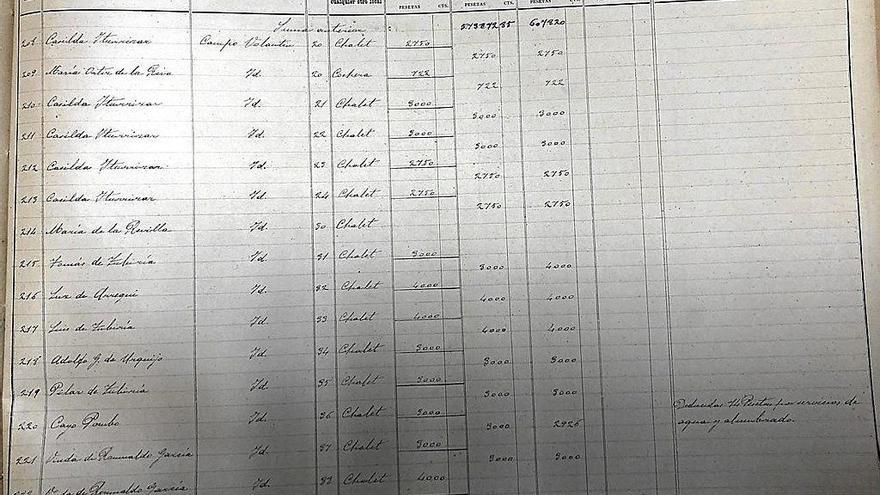 Cualquier otro local PESETAS CTS. PESETAS CTS. PESETAS CTS.
Suma anterior 607820
208 Casilda Iturrizar Campo Volantín 20 Chalet 2750 2750 2750
209 María Ortiz de la Riva Id. 20 Cochera 722 722 722
210 Casilda Iturrizar Id. 21 Chalet 3000 3000 3000
211 Casilda Iturrizar Id. 22 Chalet 3000 3000 3000
212 Casilda Iturrizar Id. 23 Chalet 2750 2750 2750
213 Casilda Iturrizar Id. 24 Chalet 2750 2750 2750
214 María de la Revilla Id. 30 Chalet
215 Tomás de Zubiría Id. 31 Chalet 3000 3000 4000
216 Luz de Arregui Id. 32 Chalet 4000 4000 4000
217 Luis de Zubiría Id. 33 Chalet 4000 4000 4000
218 Adolfo G. de Urquijo Id. 34 Chalet 3000 3000 3000
219 Pilar de Zubiría Id. 35 Chalet 3000 3000 3000
220 Cayo Pombo Id. 36 Chalet 3000 3000 2926 Deducidas 74 Pesetas por servicios de
agua y alumbrado.
221 Viuda de Romualdo García Id. 37 Chalet 3000 3000 3000
Viuda de Romualdo García Id. 38 Chalet 4000